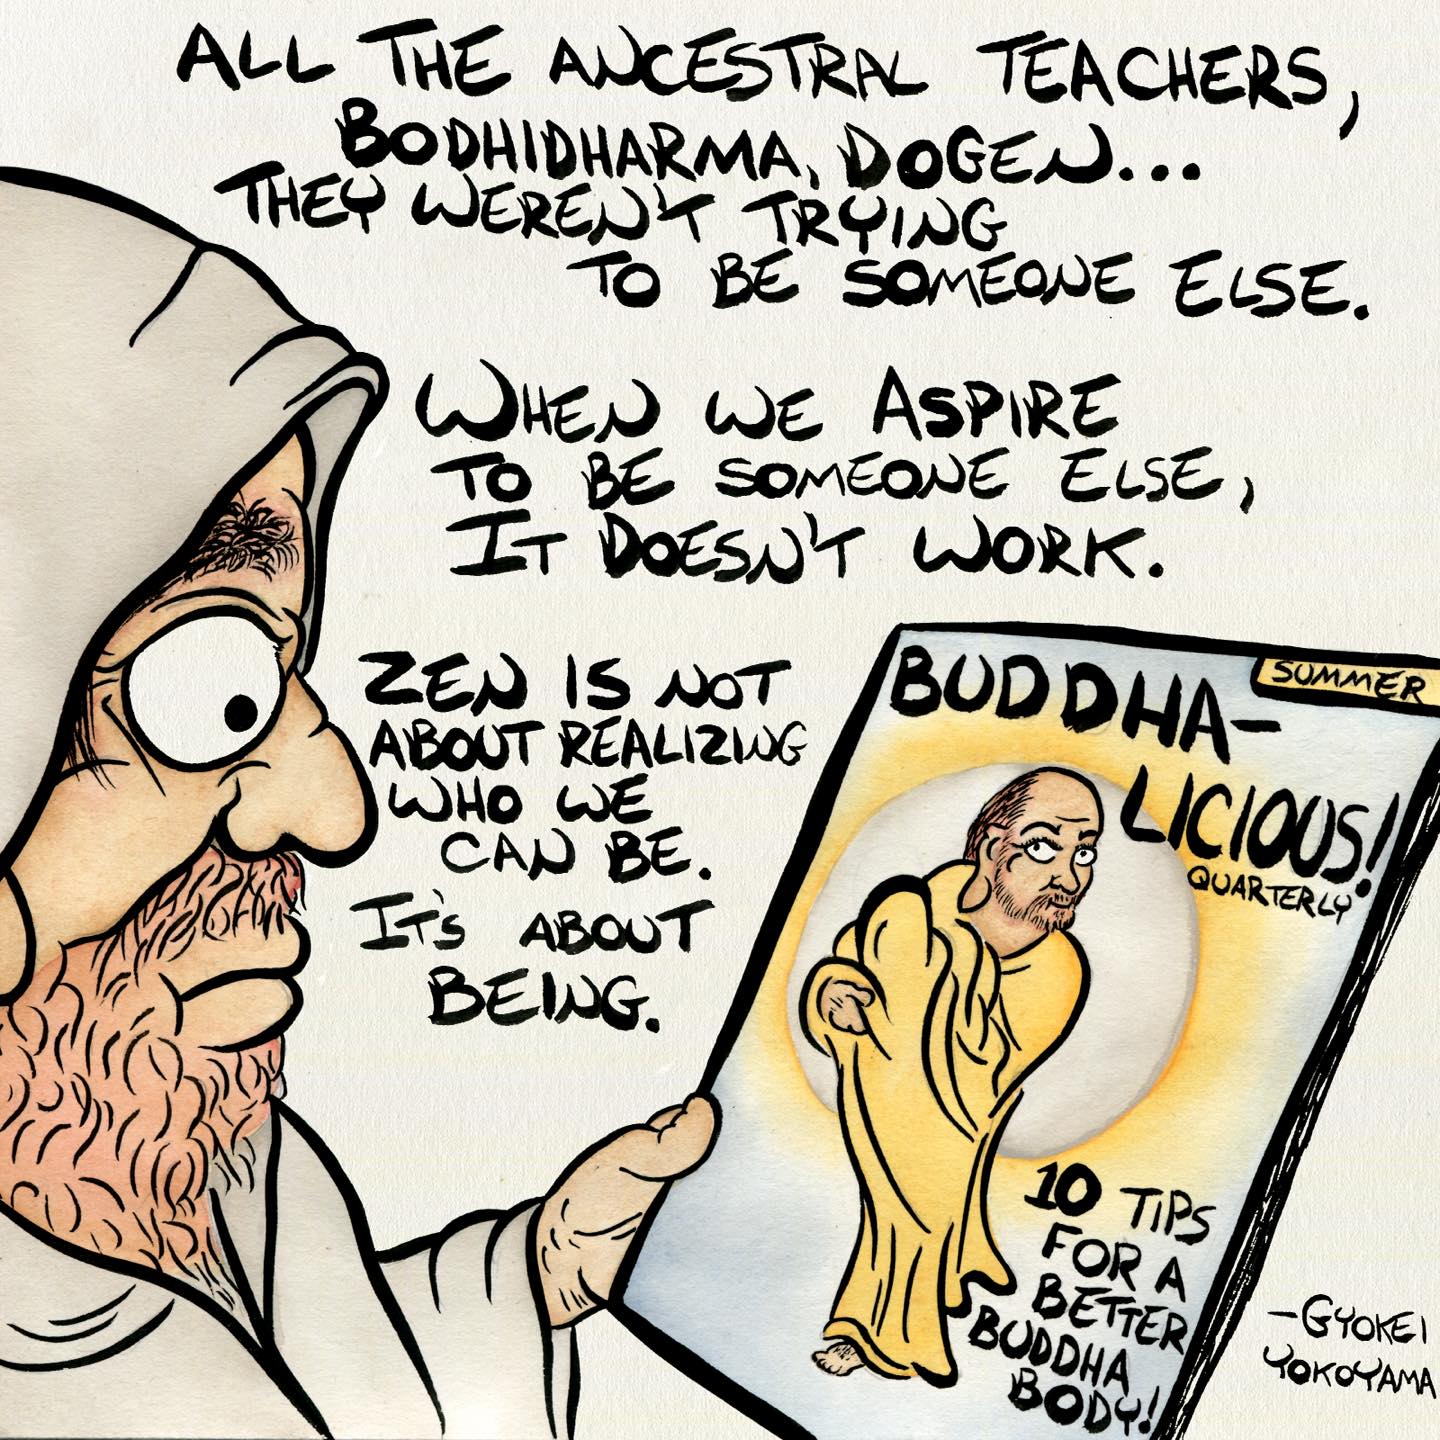 ALL THE ANCESTRAL TEACHERS,
BODHIDHARMA, DOGEN...
THEY WEREN'T TRYING
TO BE SOMEONE ELSE.
WHEN WE ASPIRE
TO BE SOMEONE ELSE,
IT DOESN'T WORK.
ZEN IS NOT
ABOUT REALIZING
WHO WE
CAN BE.
IT'S ABOUT
BEING.
SUMMER
BUDDHA-
LICIOUS!
QUARTERLY
10 TIPS
FOR A
BETTER
BUDDHA
BODY!
-GYOKEI
YOKOYAMA